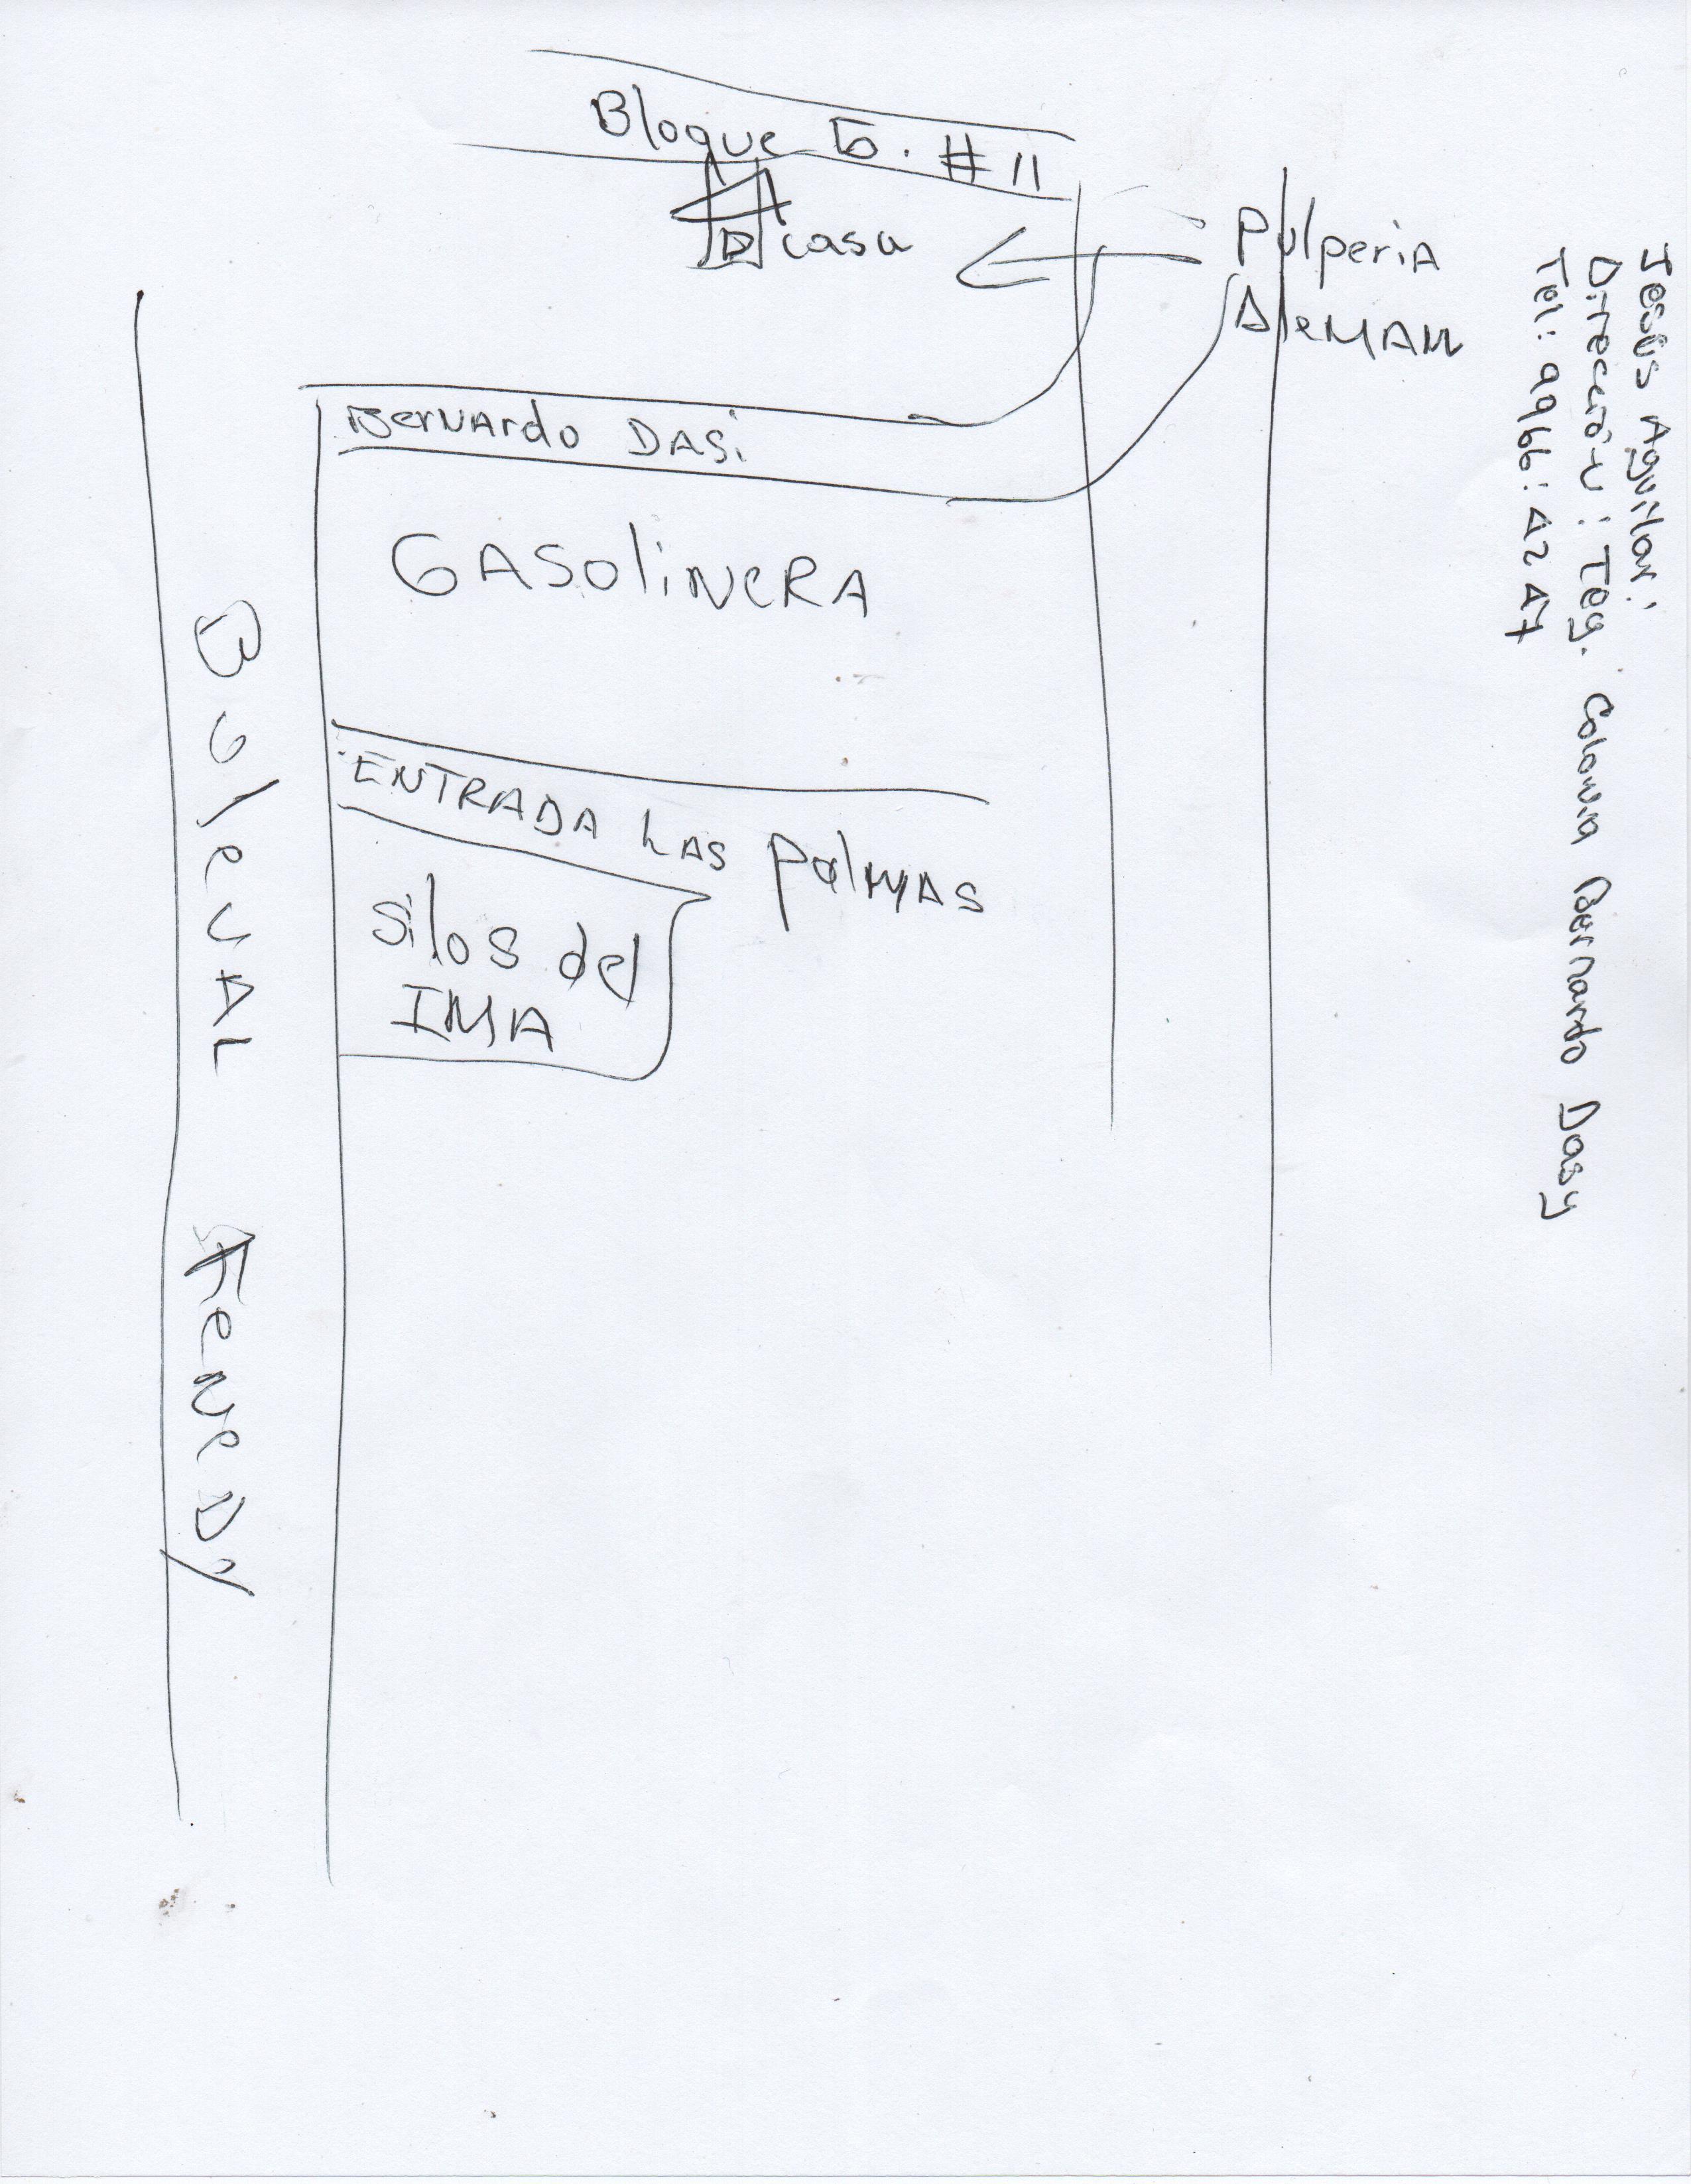 Bloque G. #11
casa
Pulperia
AleMAN
BerNArdo DASi
GASoliNeRA
ENTRADA LAS PalMAS
Silos del
IMA
BuleVAL KeNeDy
Jesús Aguilar:
Dirección: Teg. Colonia Bernardo Dasy
Tel: 9966:4247